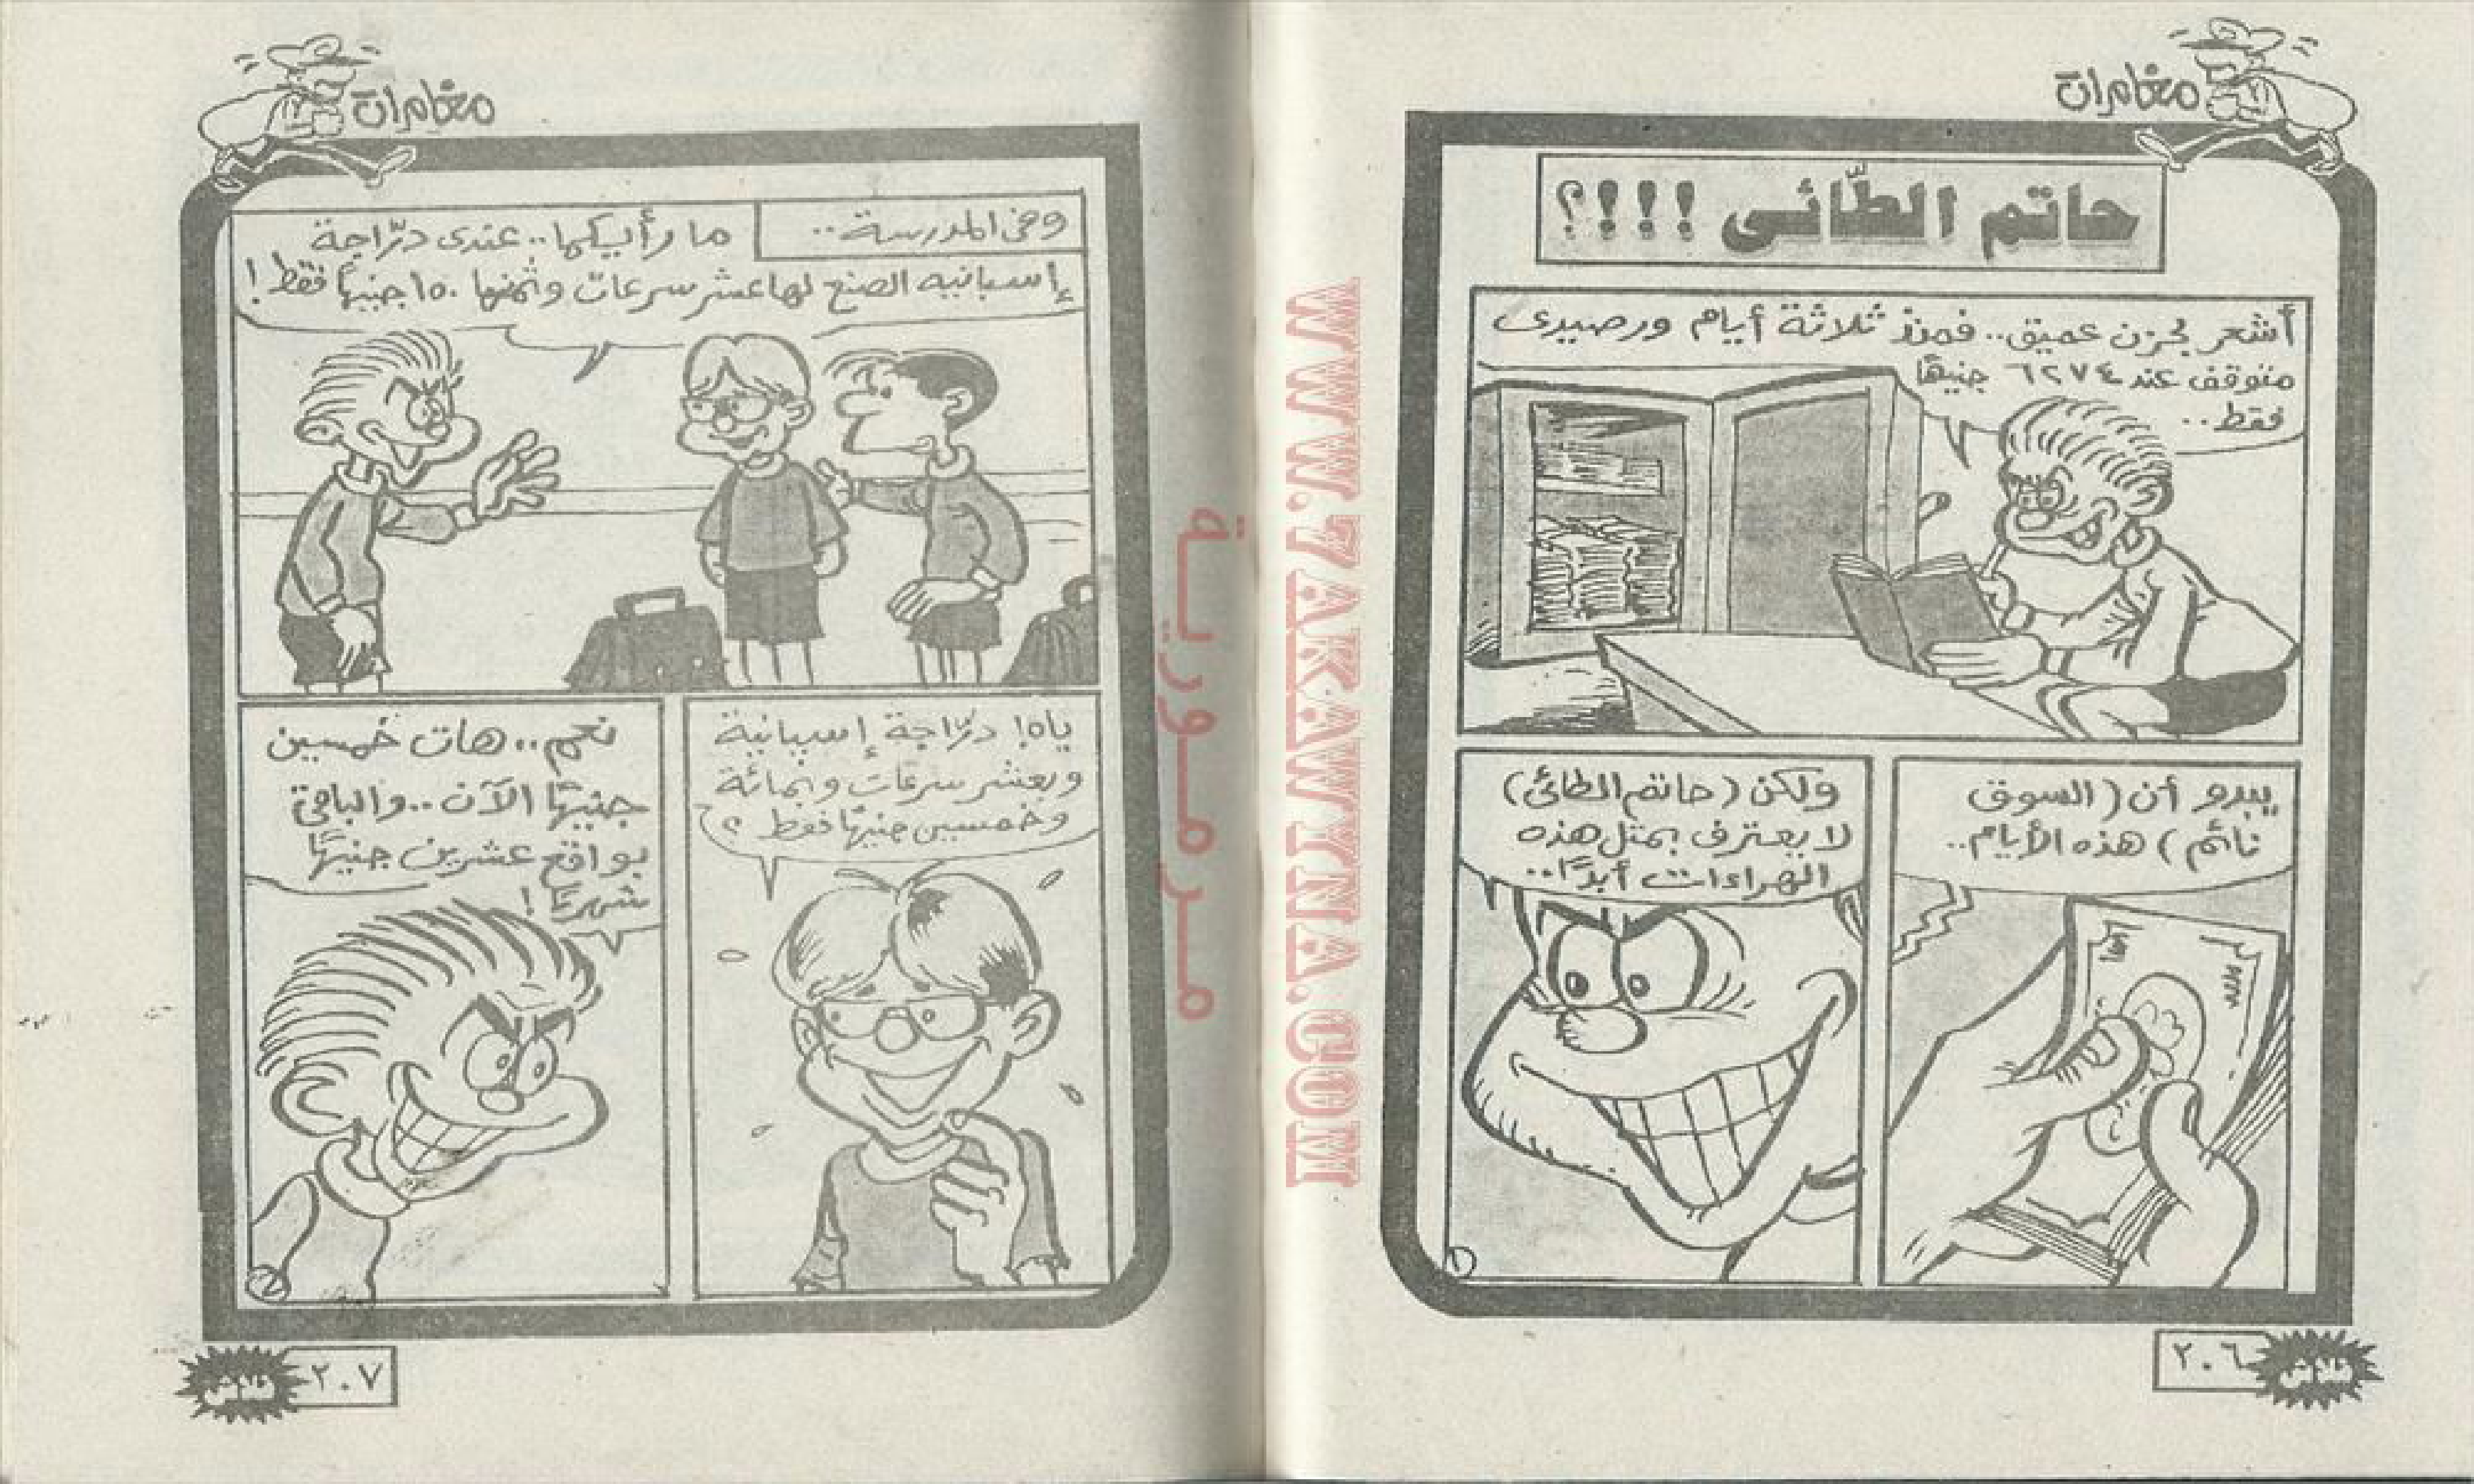 مغامرات
حاتم الطّائى !!!؟
أشعر بحزن عميق.. فمنذ ثلاثة أيام ورصيدى
متوقف عند ٦٢٧٤ جنيهًا
فقط..
يبدو أن (السوق
نائم) هذه الأيام..
ولكن (حاتم الطائى)
لا يعترف بمثل هذه
الهراءات أبدًا..
١
٢٠٦
مغامرات
وفى المدرسة..
ما رأيكما.. عندى درّاجة
إسبانيه الصنع لها عشر سرعات وثمنها ١٥٠ جنيهًا فقط!
ياه! درّاجة إسبانية
وبعشر سرعات وبمائة
وخمسين جنيهًا فقط؟
نعم.. هات خمسين
جنيهًا الآن.. والباقى
بواقع عشرين جنيهًا
شهريًا!
٢٠٧
مرمورية
WWW.7AKAWYNA.COM